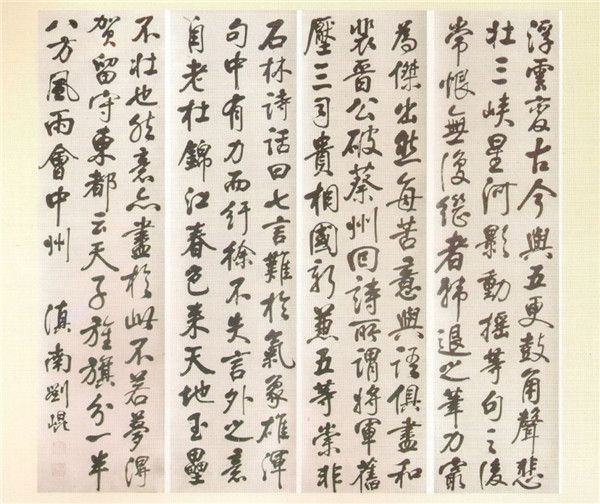 浮雲變古今與五更鼓角聲悲
壮三峡星河影動摇等句之後
常恨無復繼者韩退之筆力最
為傑出然每苦意與語俱盡和
裴晋公破蔡州回詩所謂将軍舊
壓三司貴相國新兼五等崇非
石林詩話曰七言難於氣象雄渾
句中有力而纡徐不失言外之意
自老杜錦江春色来天地玉壘
不壮也然意亦盡於此不若夢得
賀留守東都云天子旌旗分一半
八方風雨會中州 滇南劉崐